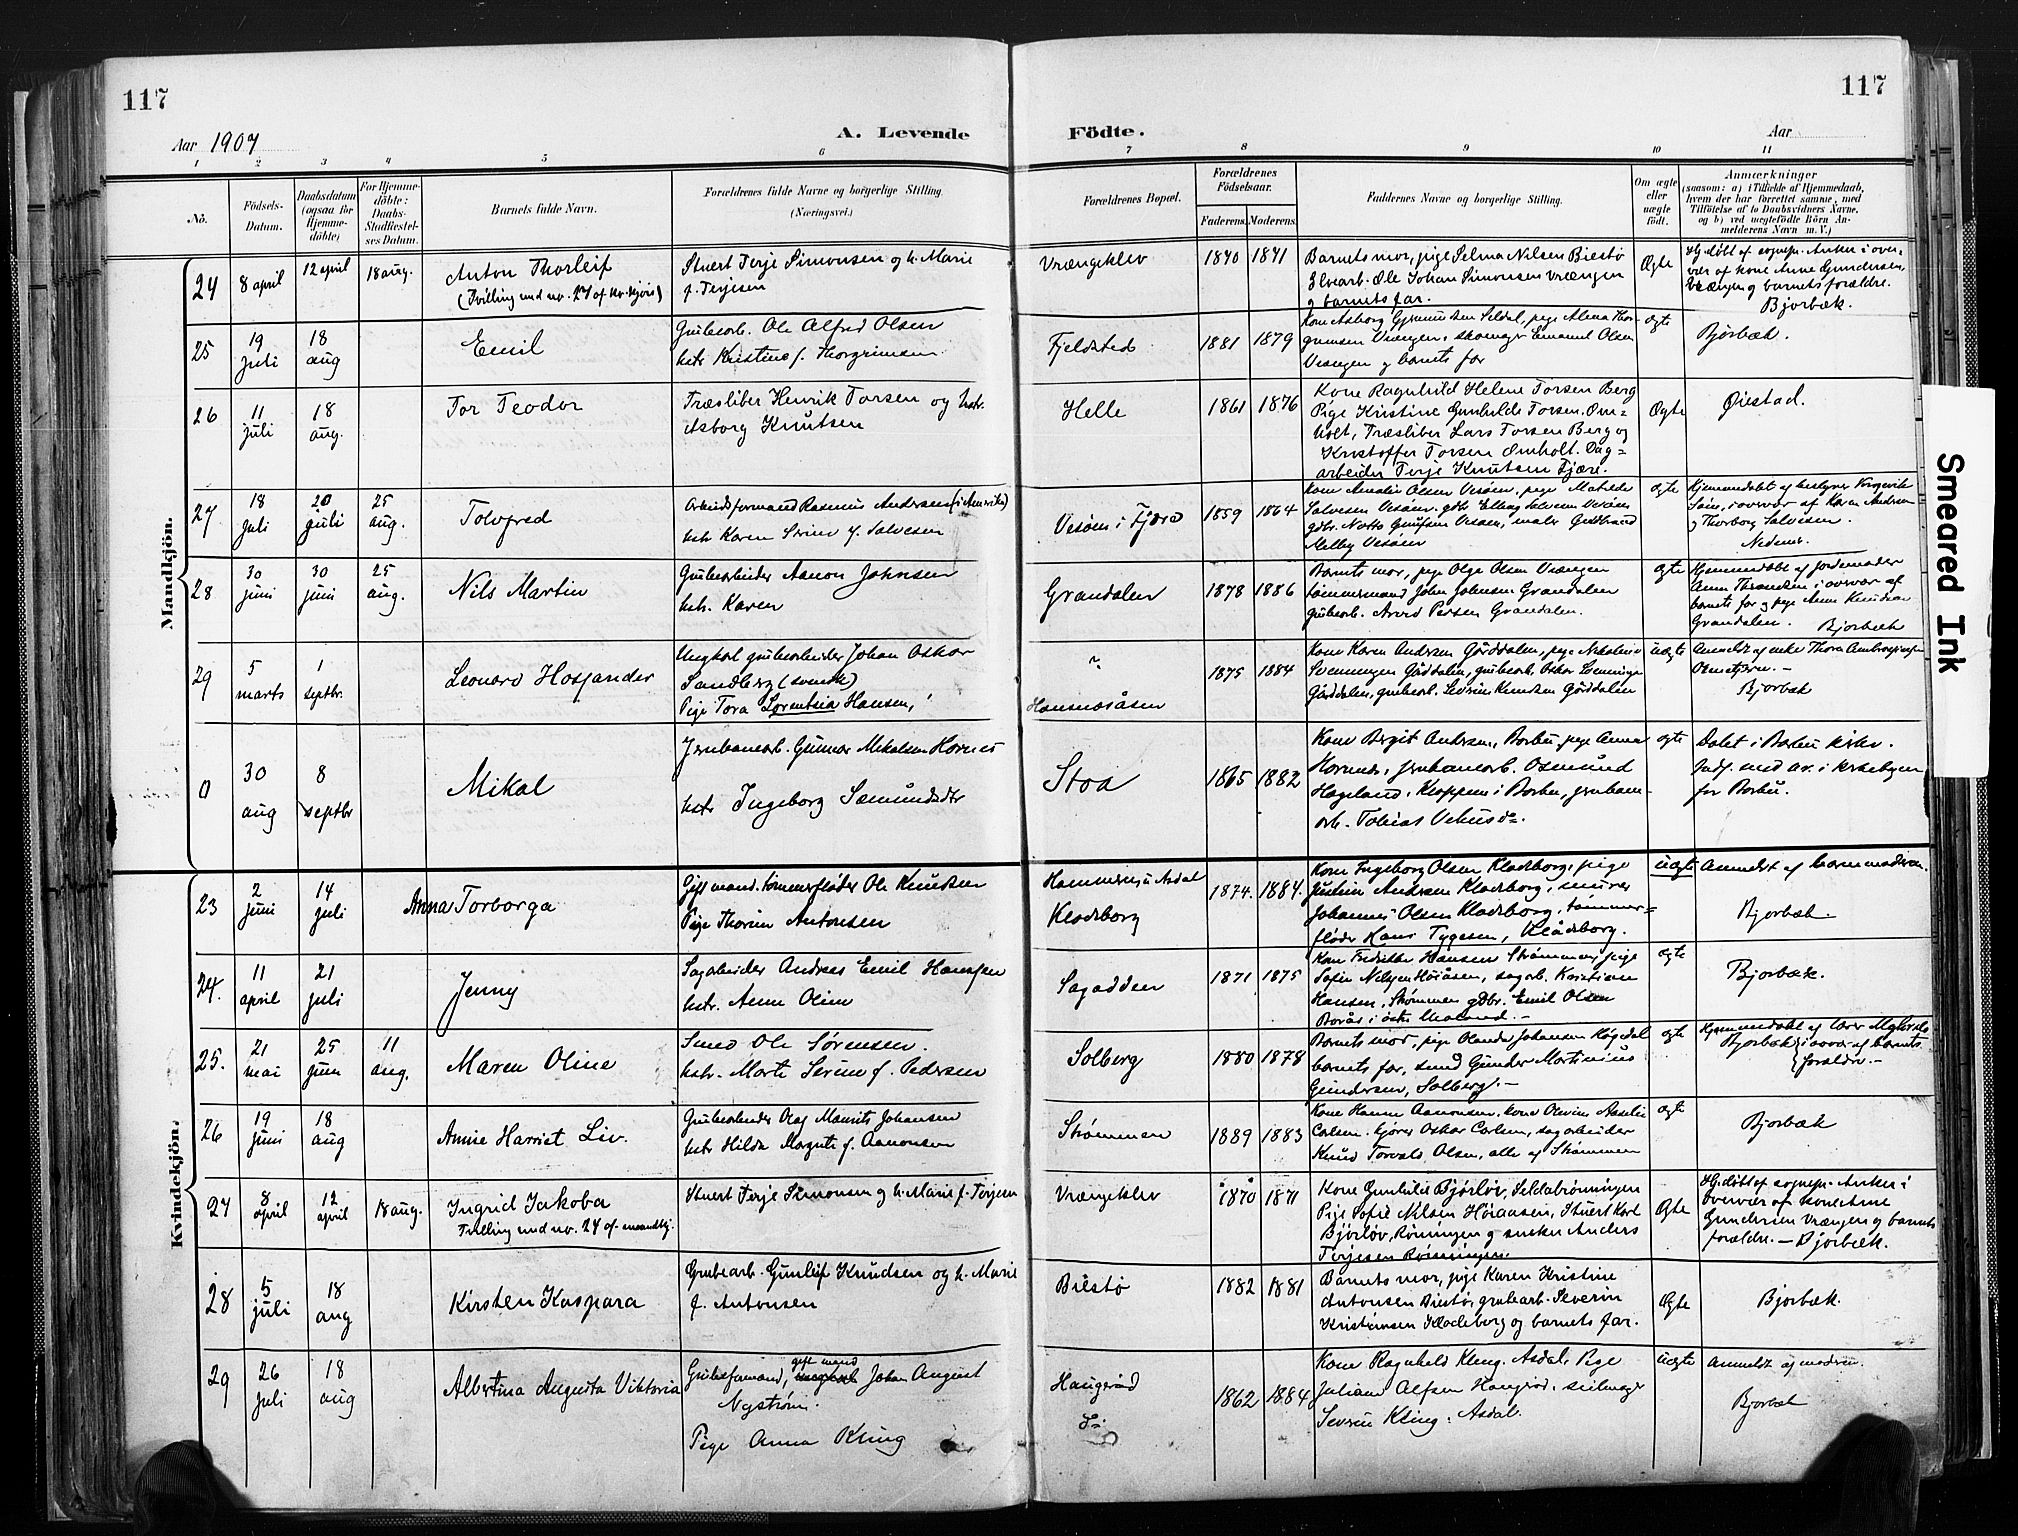 117
117
Aar 1907
A. Levende
Födte.
Aar
1 2 3 4 5 6 7 8 9 10 11
No.
Födsels-
Datum.
Daabsdatum
(ogsaa for
Hjemme-
döbte)
For Hjemme-
döbte:
Daabs-
Stadfæstel-
ses Datum.
Barnets fulde Navn.
Forældrenes fulde Navne og borgerlige Stilling.
(Næringsvei.)
Forældrenes Bopæl.
Forældrenes
Födselsaar.
Faderens. Moderens.
Faddernes Navne og borgerlige Stilling.
Om ægte
eller
uægte
født.
Anmærkninger
(saasom: a) i Tilfælde af Hjemmedaab,
hvem der har forrettet samme, med
Tilföielse af to Daabsvidners Navne,
og b) ved uægtefödte Börn An-
melderens Navn m. V.)
Mandkjön.
24
8 april
12 april
18 aug.
Anton Thorleif
(Tvilling med no. 27 af kv.kjøn)
Stuert Terje Simonsen og h. Marie
f. Terjesen
Vrængeklev
1870 1871
Barnets mor, pige Selma Nilsen Biestø
Elvearb. Ole Johan Simonsen Vrængen
og barnets far.
Ægte
Hj.døbt af sognepr. Anker i over-
vær af kone Anne Gundersen,
Vrængen og barnets forældre.
Bjorbæk.
25
19
juli
18
aug
Emil
Grubearb. Ole Alfred Olsen
hstr Kristine f. Thorgrimsen
Fjeldsted
1881 1879
Kone Asborg Seldal, pige Alma Thor-
grimsen Vrængen, skomager Emanuel Olsen
Vrængen og barnets far
ægte
Bjorbæk.
26
11
juli
18
aug.
Tor Teodor
Træsliber Henrik Torsen og hstr.
Asborg Knutsen
Helle
1861 1876
Kone Ragnhild Helene Torsen Berg
Pige Kristine Gunhilde Torsen. Om=
holt, Træsliber Lars Torsen Berg og
Kristoffer Torsen Omholt. Dag=
arbeider Terje Knutsen Fjære.
Ægte
Øiestad.
27
18
juli
20
juli
25
aug.
Tolvfred
Arbeidsformand Rasmus Andersen (i Amerika)
hstr Karen Serine f. Salvesen
Vesøen i Fjære
1859 1864
Kone Amalie Olsen Vesøen, pige Matilde
Salvesen Vesøen. gdbr Salvesen Vesøen
gdbr. Vesøen, maler
Melby Vesøen
ægte
Hjemmedøbt af bestyrer
i overvær af Karen Andersen
og Thorborg Salvesen.
Nedenes.
28
30
juni
30
juni
25
aug.
Nils Martin
Grubearbeider Aanon Johnsen
hstr. Karen
Grandalen
1878 1886
Barnets mor, pige Olga Olsen Vrængen
tømmermand John Johnsen Grandalen
grubearb. Arvid Persen Grandalen.
ægte
Hjemmedøbt af Jordemoder
Ann i overvær af
barnets far og pige Anna Knudsen
Grandalen. Bjorbæk
29
5
marts
1
septbr.
Leonard Hosjander
Ungkarl grubearbeider Johan Oskar
Sandberg (svensk)
Pige Tora Lorentsia Hansen,
Hansnesåsen
1875 1884
Kone Karen Andersen Gårddalen, pige
Svenningsen Gårddalen, grubearb. Oskar
Gårddalen, grubearb. Severin Knudsen Gårddalen
uægte
Anmeldt af enke Thora
Bjorbæk
0
30
aug
8
septbr
Mikal
Jernbanearb. Gunnar Mikalsen Hornes
hstr Ingeborg Samundsdtr
Stoa
1865 1882
Kone Bergit Andersen, Barbu, pige Anna
Hornnes, jernbanearb. Osmund
Hageland, Kloppene i Barbu, jernban-
arb. Tobias
ægte
Døbt i Barbu kirke.
Indf. med nr. i kirkebogen
for Barbu.
Kvindekjön.
23
2
juni
14
juli
Anna Torborga
Gift mand. tømmerfløder Ole Knudsen
Pige Thorine Antonsen
Hammeren i Asdal
Kladeborg
1874. 1884.
Kone Ingeborg Olsen Kladeborg, pige
Justine Andersen Kladeborg, murer
Johannes Olsen Kladeborg, tømmer=
fløder Hans Tygesen, Kladeborg.
uægte
Anmeldt af barnemoderen
Bjorbæk.
24.
11
april
21
juli
Jenny
Sagarbeider Andreas Emil Hansen
hstr. Anna Oline
Sagodden
1871 1875
Kone Fredrikke Hansen Strømmen, pige
Sofie Nilsen Høiåsen, sagarb. Kristian
Hansen, Strømmen gdbr. Emil Olsen
Borås i østre Moland.
ægte
Bjorbæk.
25.
21
mai
25
juni
11
aug.
Maren Oline
Smed Ole Sørensen.
hstr. Marte Serine f. Pedersen
Solberg
1880 1878
Barnets mor, pige Olanda Johansen Høgedal
barnets far, smed Gunder Martinius
Gundersen, Solberg.
ægte
Hjemmedøbt af lærer
i overvær af barnets
forældre.
Bjorbæk
26
19
juni
18
aug
Annie Harriet Liv.
Grubearbeider Olaf Mauritz Johansen
hstr Hilda Margrete f. Aanonsen
Strømmen
1889 1883
Kone Hanna Aanonsen, kone Olevine Aaselie
Carlsen. kjører Oskar Carlsen, sagarbeider
Knud Torvald Olsen, alle af Strømmen
ægte
Bjorbæk
27
8
april
12
april
18 aug.
Ingrid Jakoba
Tvilling med no. 24 af mandkj.
Stuert Terje Simonsen og h. Marie f. Terjesen
Vrængeklev
1870 1871
Kone Gunhilde Bjørløv, Seldalrønningen
Pige Sofie Nilsen Høiaasen, Stuert Karl
Bjørløv, Rønningen og snekker Anders
Terjesen Rønningen.
Ægte
Hj.døbt af sognepr. Anker i
overvær af kone Anne
Gundersen Vrængen og barnets
forældre. — Bjorbæk.
28
5
juli
18
aug
Kirsten Kaspara
Grubearb. Gunleif Knudsen og h. Marie
f. Antonsen
Biestø
1882 1881
Barnets mor, pige Karen Kristine
Antonsen Biestø, grubearb. Severin
Kristensen Kladeborg og barnets far.
Ægte
Bjorbæk.
29
26
juli
18
aug
Albertina Augusta Viktoria
Grubeformand, gift mand Johan August
Nystrøm.
Pige Anna Kling
Haugerød
1862 1884
Kone Ragnhild Kling, Asdal, Pige
Juliane Alfsen Haugerød, seilmager
Severin Kling, Asdal.
uægte
Anmeldt af modren.
Bjorbæk
Smeared Ink